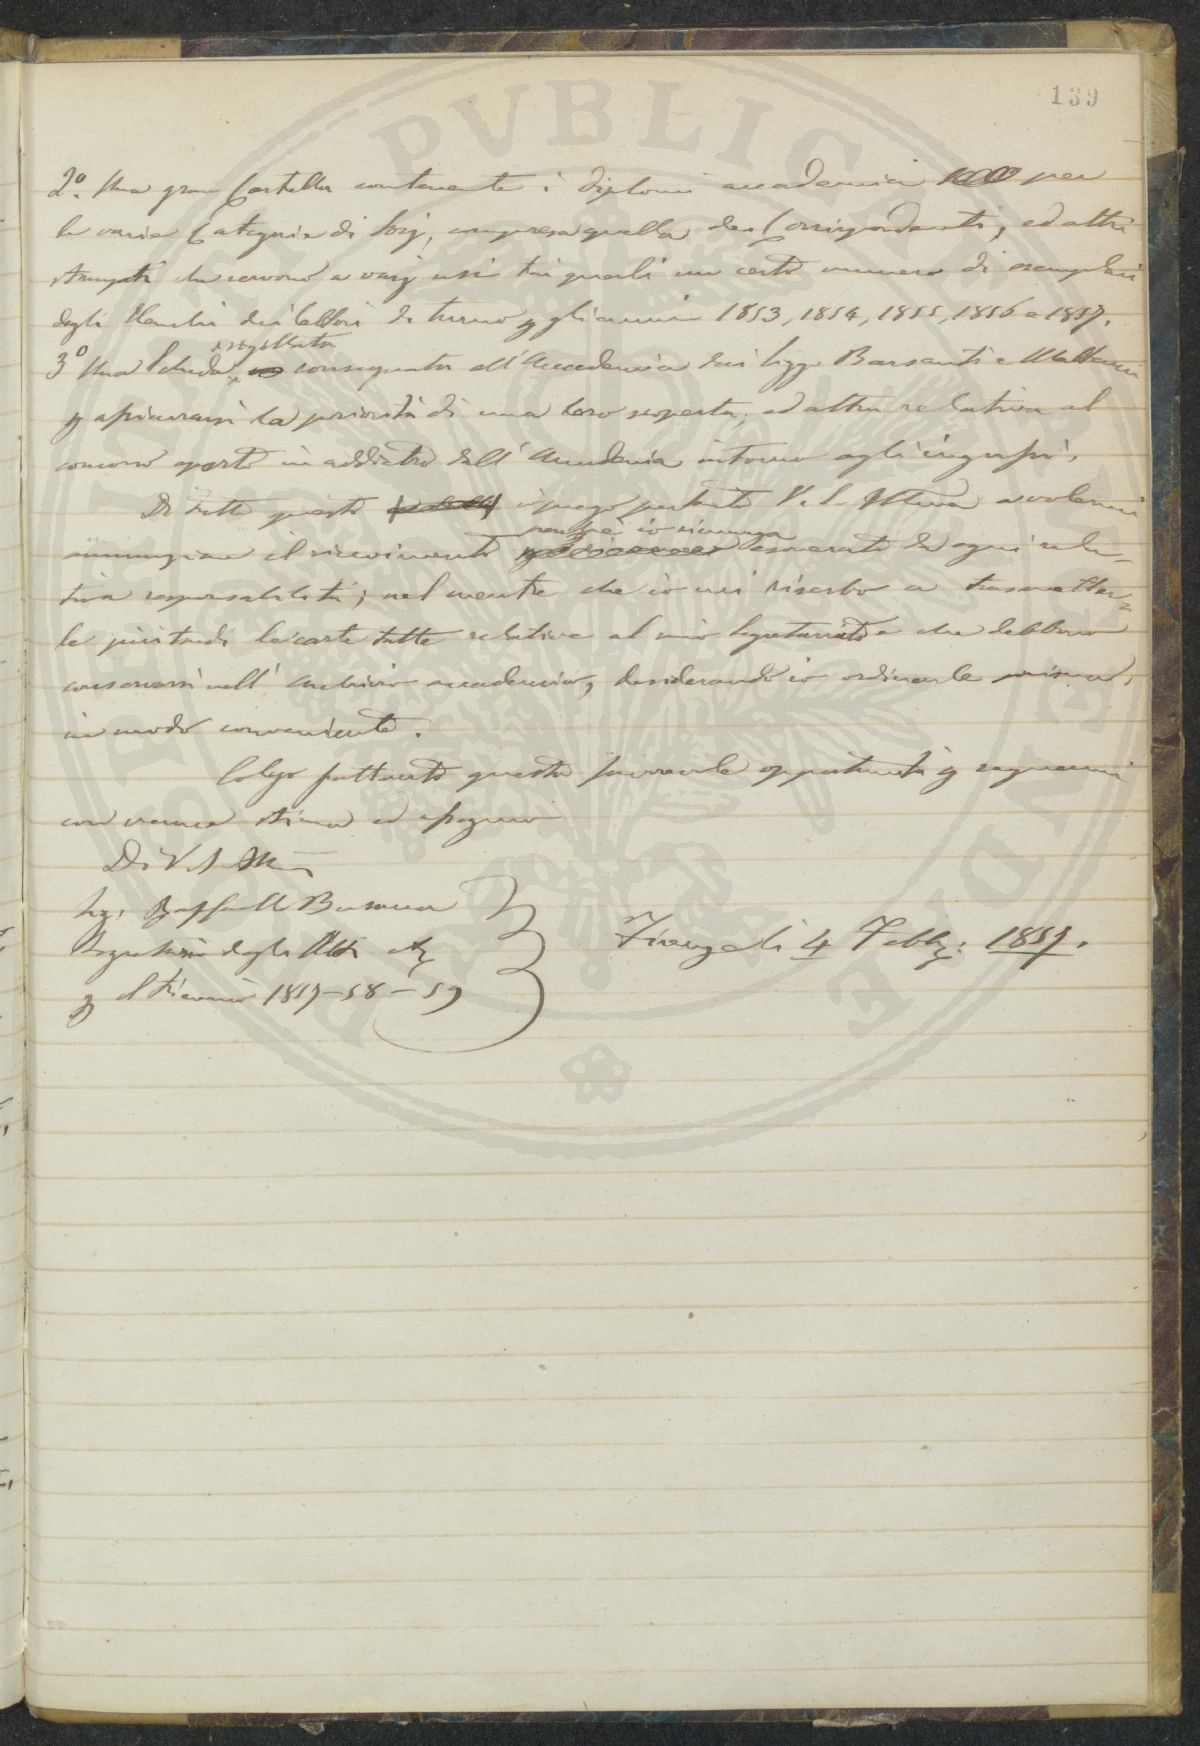 139
2.° Una gran Cartella contenente i diplomi accademici per
le varie Categorie di Socj, compresa quella dei Corrispondenti, ed altri
stampati che servono a varj usi tra i quali un certo numero di esemplari
degli Elenchi dei lettori di turno p gli anni 1853, 1854, 1855, 1856 e 1857.
sigillata
3° Una Scheda consegnata all'Accademia dai Sigg. Barsanti e Matteucci
p assicurarsi la priorità di una loro scoperta, ed altra relativa al
concorso aperto in addietro dall'Accademia intorno agli ingrassi.
Di tutti questi io prego pertanto V. S. Ill.ma a volermi
perchè io rimanga
annunziare il ricevimento esonerato da ogni rela-
tiva responsabilità; nel mentre che io mi riserbo a trasmetter-
le più tardi le carte tutte relative al mio Segretariato e che debbono
conservarsi nell'Archivio accademico, desiderando io ordinarle prima,
in modo conveniente.
Colgo frattanto questa favorevole opportunità p segnarmi
con verace stima ed ossequio
Di V. S. Ill.ma
Raffaello Busacca
Segretario degli Atti
p il triennio 1857-58-59
Firenze li 4 Febb: 1859.
PVBLIC